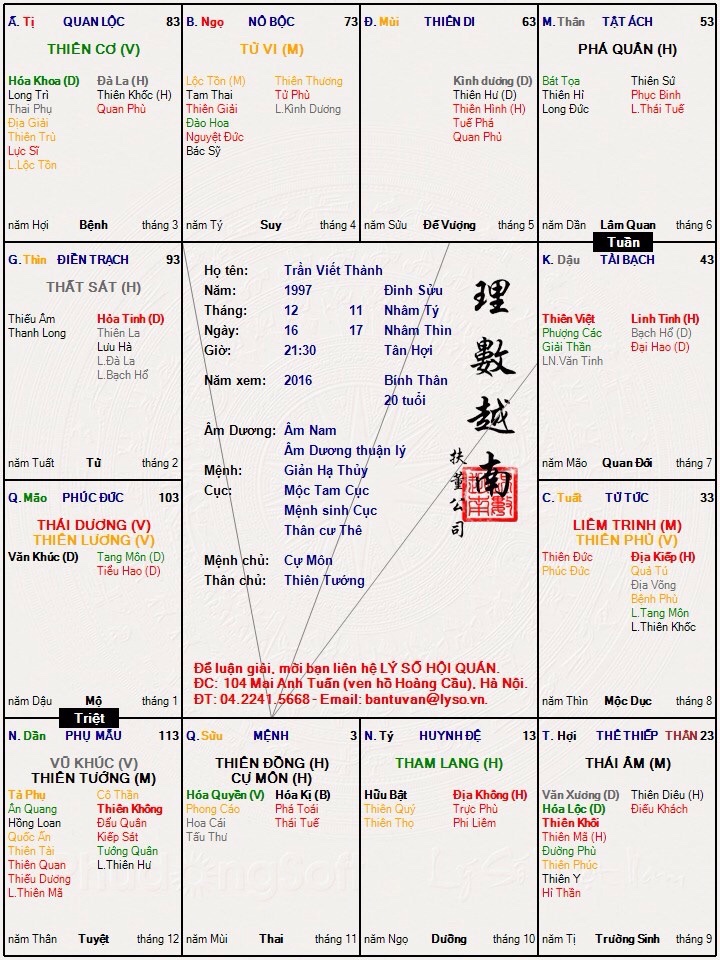 Ấ. Tị QUAN LỘC 83
THIÊN CƠ (V)
Hóa Khoa (D) Đà La (H)
Long Trì Thiên Khốc (H)
Thai Phụ Quan Phù
Địa Giải
Thiên Trù
Lực Sĩ
L.Lộc Tồn
năm Hợi Bệnh tháng 3
B. Ngọ NÔ BỘC 73
TỬ VI (M)
Lộc Tồn (M) Thiên Thương
Tam Thai Tử Phù
Thiên Giải L.Kình Dương
Đào Hoa
Nguyệt Đức
Bác Sỹ
năm Tý Suy tháng 4
Đ. Mùi THIÊN DI 63
Kình dương (D)
Thiên Hư (D)
Thiên Hình (H)
Tuế Phá
Quan Phủ
năm Sửu Đế Vượng tháng 5
M. Thân TẬT ÁCH 53
PHÁ QUÂN (H)
Bát Tọa Thiên Sứ
Thiên Hỉ Phục Binh
Long Đức L.Thái Tuế
năm Dần Lâm Quan tháng 6
Tuần
G. Thìn ĐIỀN TRẠCH 93
THẤT SÁT (H)
Thiếu Âm Hỏa Tinh (D)
Thanh Long Thiên La
Lưu Hà
L.Đà La
L.Bạch Hổ
năm Tuất Tử tháng 2
Họ tên: Trần Viết Thành
Năm: 1997 Đinh Sửu
Tháng: 12 11 Nhâm Tý
Ngày: 16 17 Nhâm Thìn
Giờ: 21:30 Tân Hợi
Năm xem: 2016 Bính Thân
20 tuổi
Âm Dương: Âm Nam
Âm Dương thuận lý
Mệnh: Giản Hạ Thủy
Cục: Mộc Tam Cục
Mệnh sinh Cục
Thân cư Thê
Mệnh chủ: Cự Môn
Thân chủ: Thiên Tướng
理數越南
扶董公司
Để luận giải, mời bạn liên hệ LÝ SỐ HỘI QUÁN.
ĐC: 104 Mai Anh Tuấn (ven hồ Hoàng Cầu), Hà Nội.
ĐT: 04.2241.5668 - Email: bantuvan@lyso.vn.
K. Dậu TÀI BẠCH 43
Thiên Việt Linh Tinh (H)
Phượng Các Bạch Hổ (D)
Giải Thần Đại Hao (D)
LN.Văn Tinh
năm Mão Quan Đới tháng 7
Q. Mão PHÚC ĐỨC 103
THÁI DƯƠNG (V)
THIÊN LƯƠNG (V)
Văn Khúc (D) Tang Môn (D)
Tiểu Hao (D)
năm Dậu Mộ tháng 1
Triệt
C. Tuất TỬ TỨC 33
LIÊM TRINH (M)
THIÊN PHỦ (V)
Thiên Đức Địa Kiếp (H)
Phúc Đức Quả Tú
Địa Võng
Bệnh Phù
L.Tang Môn
L.Thiên Khốc
năm Thìn Mộc Dục tháng 8
N. Dần PHỤ MẪU 113
VŨ KHÚC (V)
THIÊN TƯỚNG (M)
Tả Phụ Cô Thần
Ân Quang Thiên Không
Hồng Loan Đẩu Quân
Quốc Ấn Kiếp Sát
Thiên Tài Tướng Quân
Thiên Quan L.Thiên Hư
Thiếu Dương
L.Thiên Mã
năm Thân Tuyệt tháng 12
Q. Sửu MỆNH 3
THIÊN ĐỒNG (H)
CỰ MÔN (H)
Hóa Quyền (V) Hóa Kị (B)
Phong Cáo Phá Toái
Hoa Cái Thái Tuế
Tấu Thư
năm Mùi Thai tháng 11
N. Tý HUYNH ĐỆ 13
THAM LANG (H)
Hữu Bật Địa Không (H)
Thiên Quý Trực Phù
Thiên Thọ Phi Liêm
năm Ngọ Dưỡng tháng 10
T. Hợi THÊ THIẾP THÂN 23
THÁI ÂM (M)
Văn Xương (D) Thiên Diêu (H)
Hóa Lộc (D) Điếu Khách
Thiên Khôi
Thiên Mã (H)
Đường Phù
Thiên Phúc
Thiên Y
Hỉ Thần
năm Tị Trường Sinh tháng 9